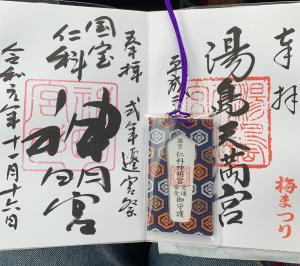 奉拝
湯島天満宮
梅まつり
平成三
奉拝
式年遷宮祭
国宝
仁科
神明宮
令和元年十一月十六日
国宝
仁科神明宮
交通安全
御守護